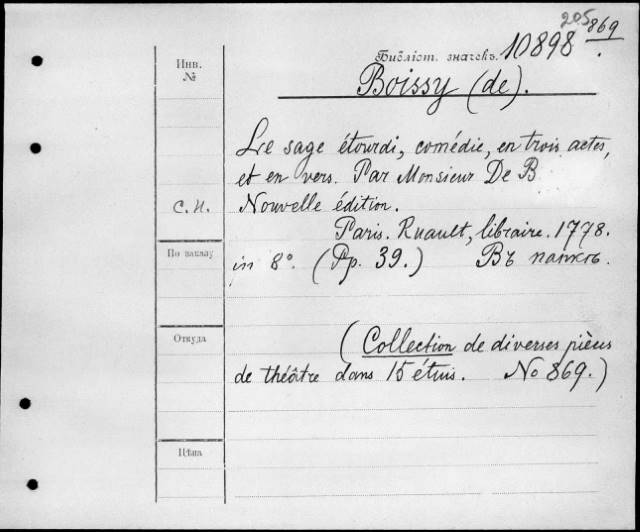 205
869
Инв.
№
Библіот. значекъ. 10898
Boissy (de).
Le sage étourdi, comédie, en trois actes,
et en vers. Par Monsieur De B.
С. И. Nouvelle édition.
Paris. Ruault, libraire. 1778.
По заказу
in 8°. (Pp. 39.) Въ папкѣ.
Откуда
(Collection de diverses pièces
de théâtre dans 15 étuis. No 869.)
Цѣна